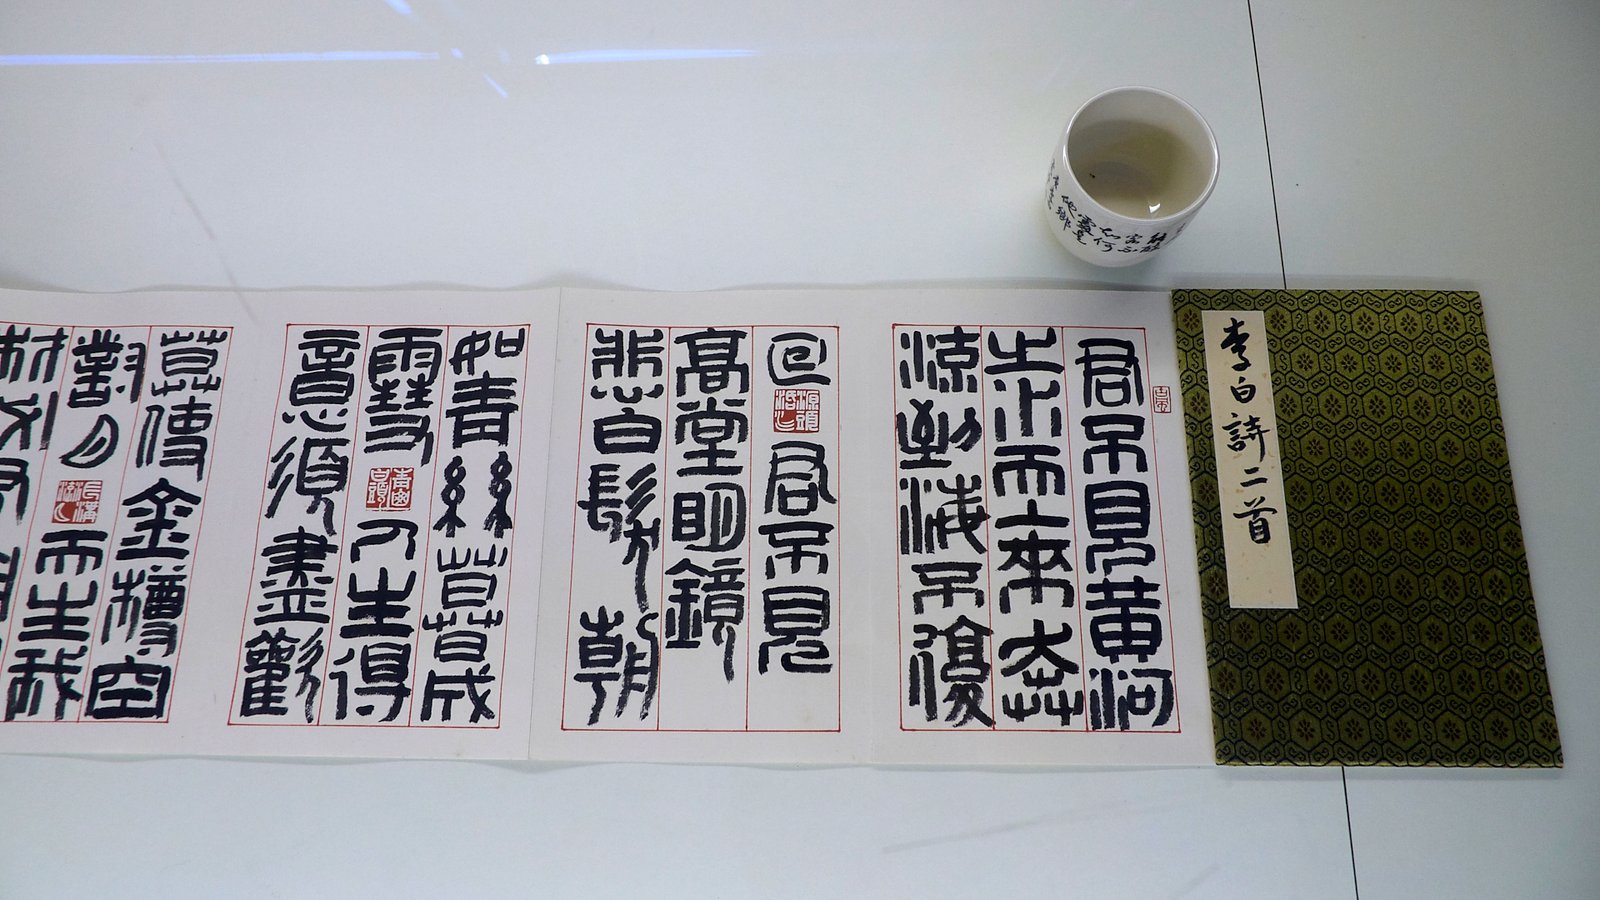 李白詩二首
君不見黃河
之水天上來奔
流到海不復
回君不見
高堂明鏡
悲白髮朝
如青絲暮成
雪人生得
意須盡歡
莫使金樽空
對月天生我
材必有用
客不
知何
處是
他鄉